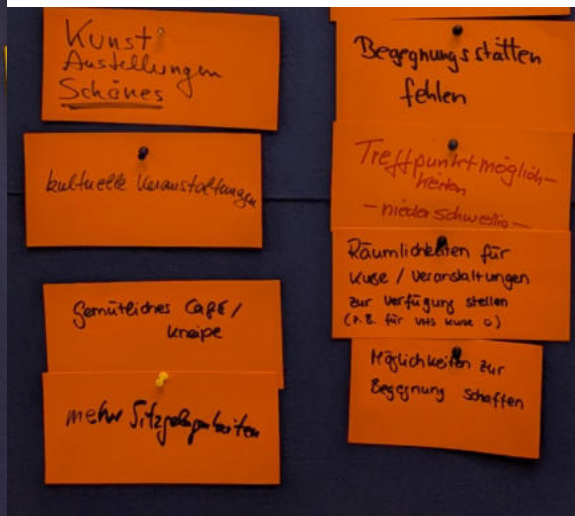 Kunst
Austellungen
Schönes
kulturelle Veranstaltungen
Gemütliches Café /
Kneipe
mehr Sitzgelegenheiten
Begegnungsstätten
fehlen
Treffpunktmöglich-
keiten
- niederschwellig -
Räumlichkeiten für
Kurse / Veranstaltungen
zur Verfügung stellen
(z.B. für VHS Kurse
Möglichkeiten zur
Begegnung schaffen